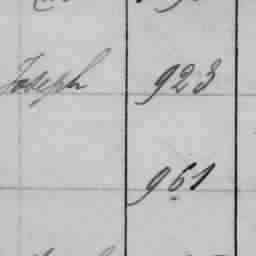 Joseph 923
961